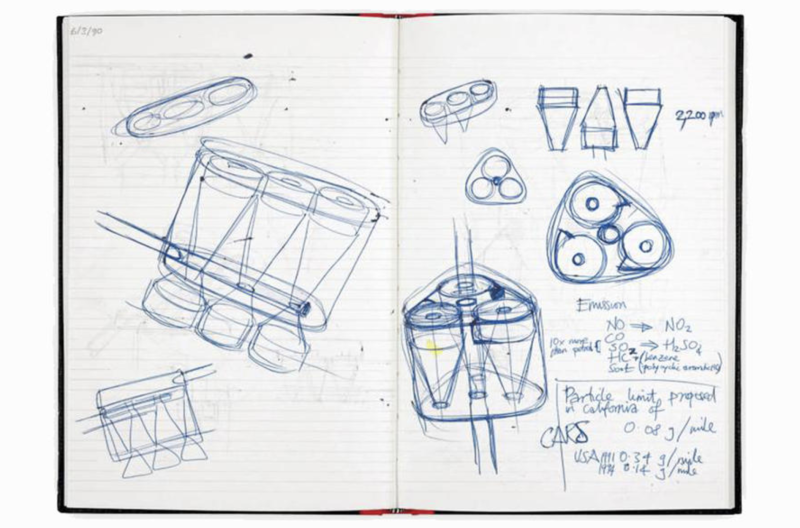 6/3/90
2,200 rpm
Emission
NO ⇒ NO2
CO
10x more than petrol {
SO2 ⇒ H2SO4
HC + (benzene
Soot (polycyclic aromatics)
Particle limit proposed
in California of
CARS 0.08 g/mile
USA 1991 0.34 g/mile
0.14 g/mile